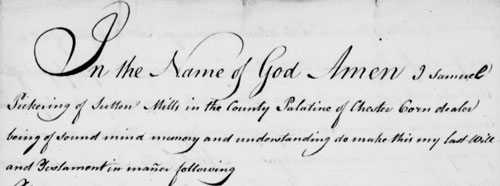 In the Name of God Amen I Samuel
Pickering of Sutton Mills in the County Palatine of Chester Corn dealer
being of sound mind memory and understanding do make this my last Will
and Testament in mañer following